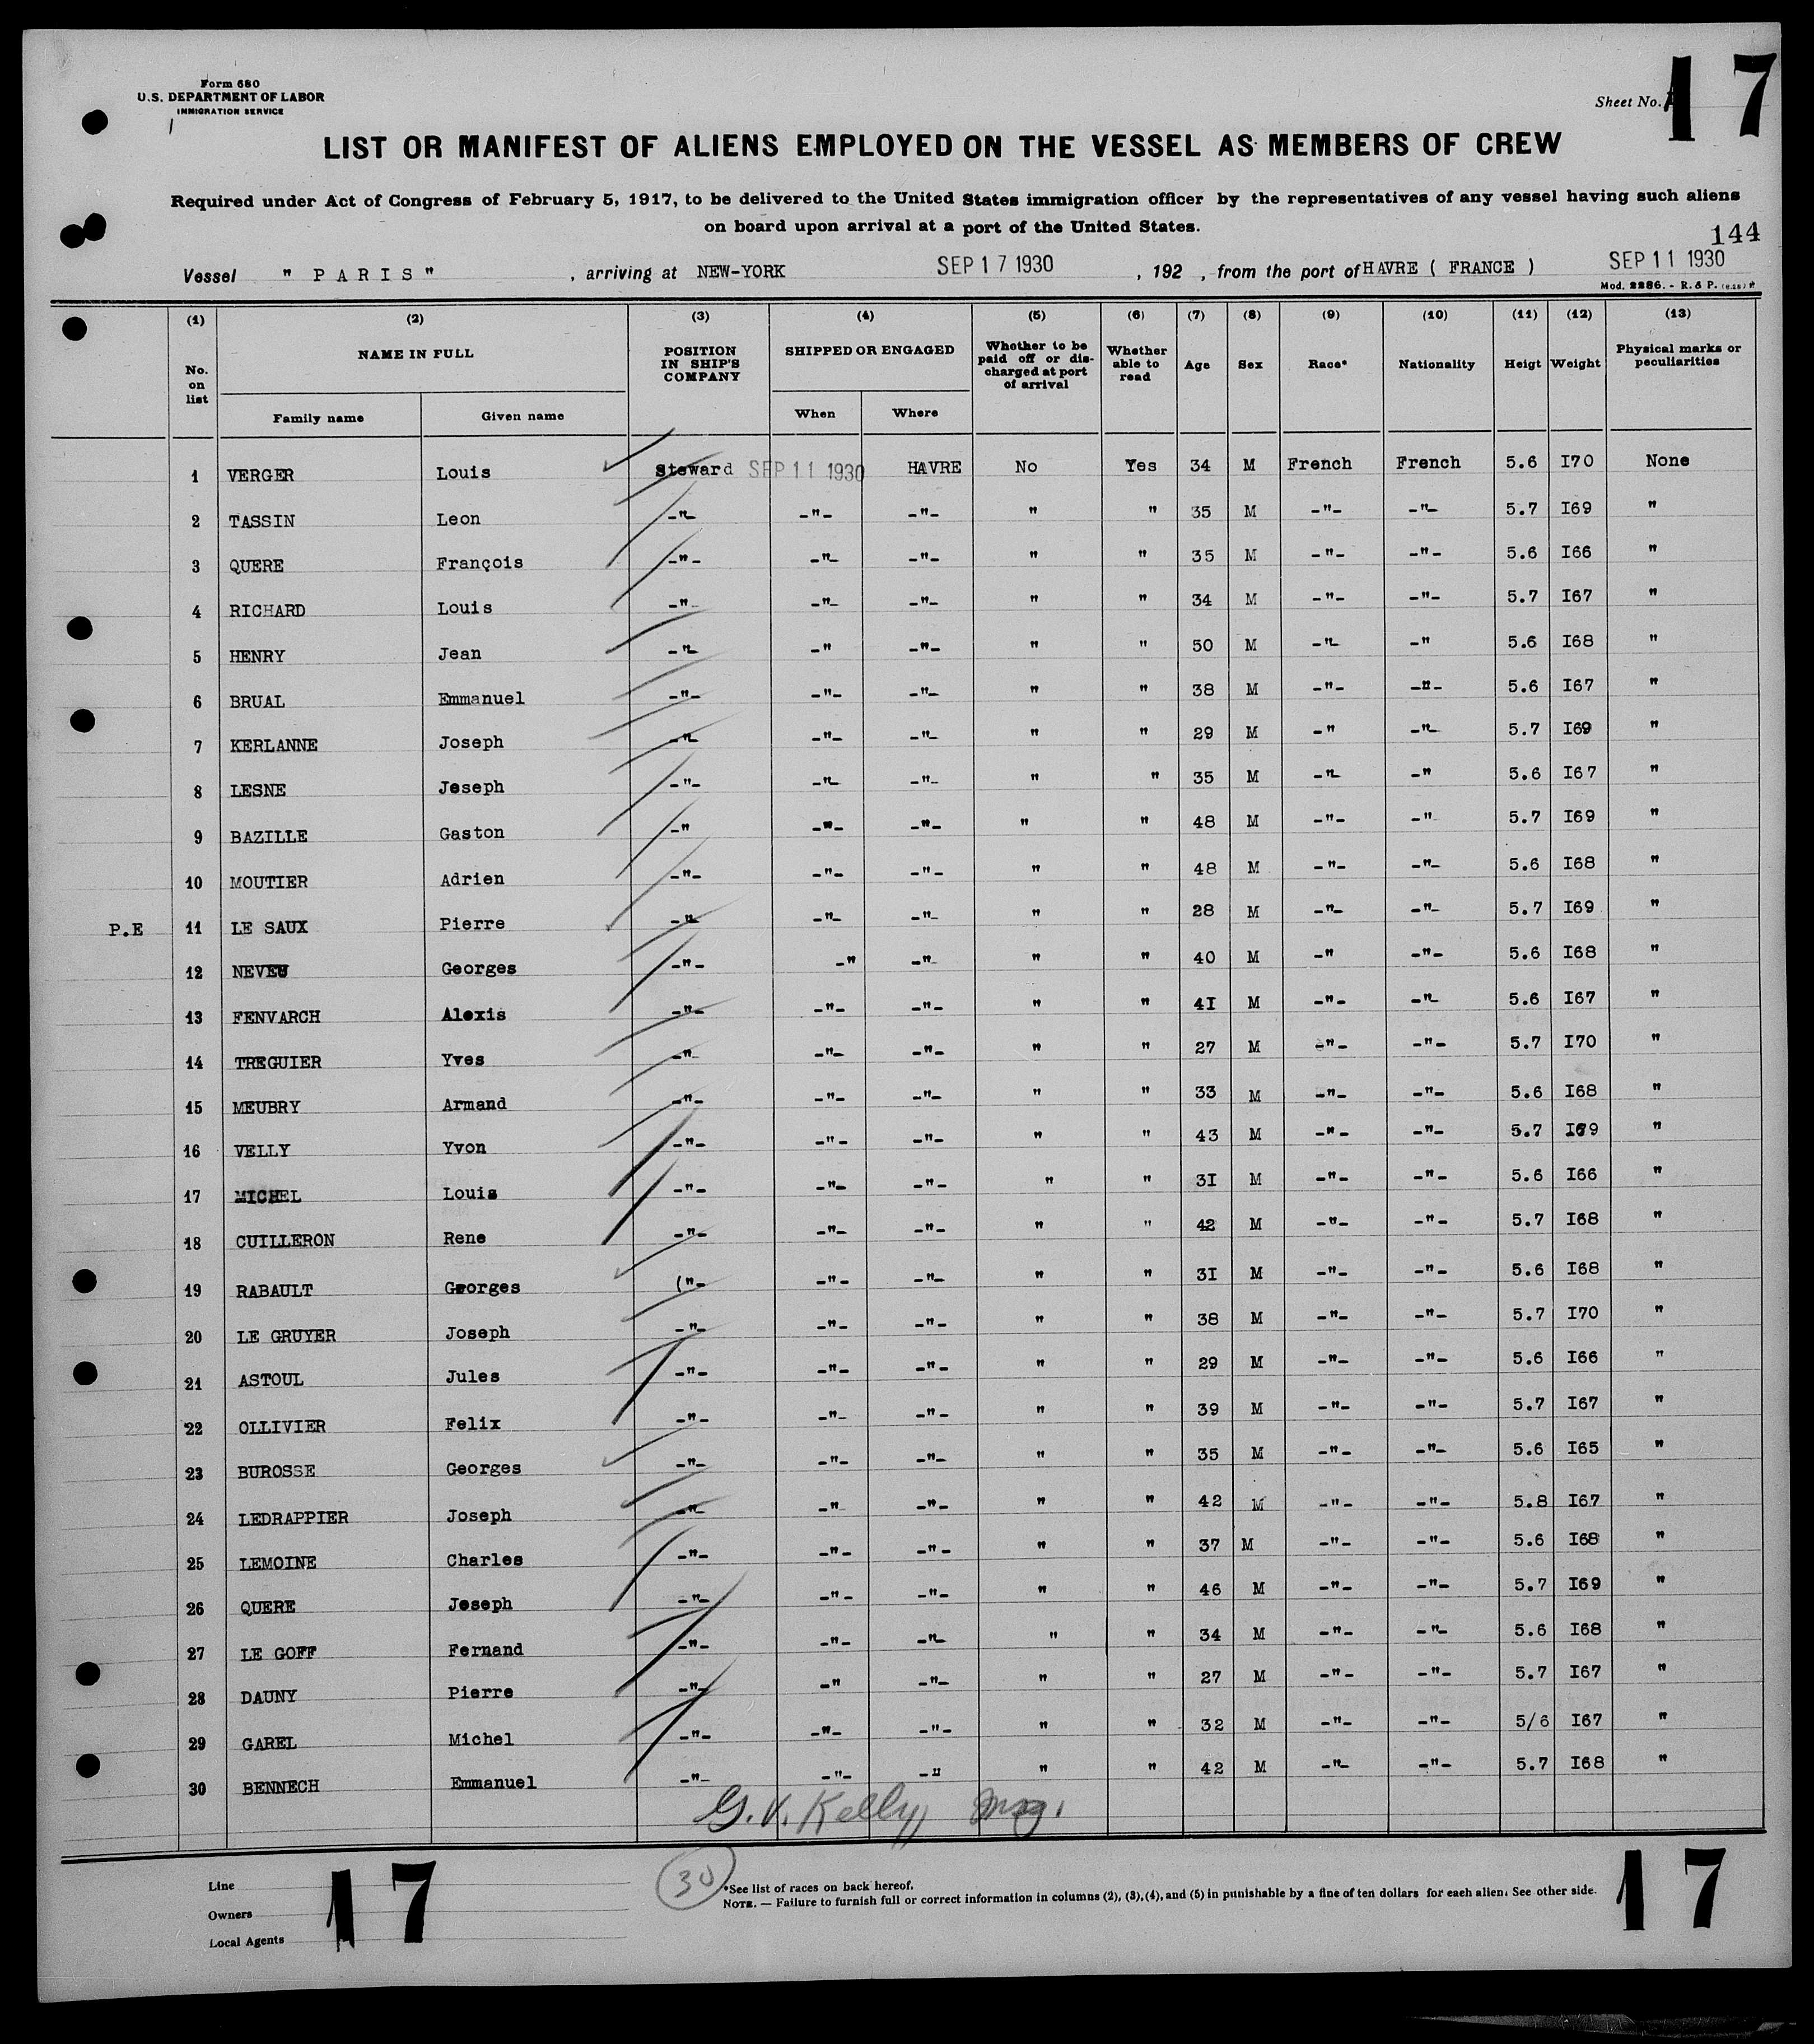 Form 680
U.S. DEPARTMENT OF LABOR
IMMIGRATION SERVICE
Sheet No. 17
LIST OR MANIFEST OF ALIENS EMPLOYED ON THE VESSEL AS MEMBERS OF CREW
Required under Act of Congress of February 5, 1917, to be delivered to the United States immigration officer by the representatives of any vessel having such aliens
on board upon arrival at a port of the United States.
144
Vessel " PARIS " , arriving at NEW-YORK SEP 17 1930 , 192 , from the port of HAVRE ( FRANCE ) SEP 11 1930
Mod. 2286. - R. & P.
(1) (2) (3) (4) (5) (6) (7) (8) (9) (10) (11) (12) (13)
No. on list NAME IN FULL POSITION IN SHIP'S COMPANY SHIPPED OR ENGAGED Whether to be paid off or discharged at port of arrival Whether able to read Age Sex Race* Nationality Heigt Weight Physical marks or peculiarities
Family name Given name When Where
1 VERGER Louis Steward SEP 11 1930 HAVRE No Yes 34 M French French 5.6 I70 None
2 TASSIN Leon -"- -"- -"- " " 35 M -"- -"- 5.7 I69 "
3 QUERE François -"- -"- -"- " " 35 M -"- -"- 5.6 I66 "
4 RICHARD Louis -"- -"- -"- " " 34 M -"- -"- 5.7 I67 "
5 HENRY Jean -"- -" -"- " " 50 M -"- -" 5.6 I68 "
6 BRUAL Emmanuel -"- -"- -"- " " 38 M -"- -"- 5.6 I67 "
7 KERLANNE Joseph -"- -"- -"- " " 29 M -" -"- 5.7 I69 "
8 LESNE Joseph -"- -"- -"- " " 35 M -"- -" 5.6 I67 "
9 BAZILLE Gaston -" -"- -"- " " 48 M -"- -" 5.7 I69 "
10 MOUTIER Adrien -"- -"- -"- " " 48 M -"- -"- 5.6 I68 "
P.E 11 LE SAUX Pierre -"- -"- -"- " " 28 M -"- -"- 5.7 I69 "
12 NEVEU Georges -"- -" -"- " " 40 M -" -"- 5.6 I68 "
13 FENVARCH Alexis -"- -"- -"- " " 41 M -"- -"- 5.6 I67 "
14 TREGUIER Yves -"- -"- -"- " " 27 M -"- -"- 5.7 I70 "
15 MEUBRY Armand -"- -"- -"- " " 33 M -"- -"- 5.6 I68 "
16 VELLY Yvon -"- -"- -"- " " 43 M -"- -"- 5.7 "
17 MICHEL Louis -"- -"- -"- " " 3I M -"- -"- 5.6 I66 "
18 CUILLERON Rene -"- -"- -"- " " 42 M -"- -"- 5.7 I68 "
19 RABAULT Georges ("- -"- -"- " " 3I M -"- -"- 5.6 I68 "
20 LE GRUYER Joseph -"- -"- -"- " " 38 M -"- -"- 5.7 I70 "
21 ASTOUL Jules -"- -"- -"- " " 29 M -"- -"- 5.6 I66 "
22 OLLIVIER Felix -"- -"- -"- " " 39 M -"- -"- 5.7 I67 "
23 BUROSSE Georges -"- -"- -"- " " 35 M -"- -"- 5.6 I65 "
24 LEDRAPPIER Joseph -"- -" -"- " " 42 M -"- -"- 5.8 I67 "
25 LEMOINE Charles -"- -"- -"- " " 37 M -"- -"- 5.6 I68 "
26 QUERE Joseph -"- -"- -"- " " 46 M -"- -"- 5.7 I69 "
27 LE GOFF Fernand -"- -"- -"- " " 34 M -"- -"- 5.6 I68 "
28 DAUNY Pierre -"- -" -"- " " 27 M -"- -"- 5.7 I67 "
29 GAREL Michel -"- -"- -"- " " 32 M -"- -"- 5/6 I67 "
30 BENNECH Emmanuel -"- -"- -" " " 42 M -"- -"- 5.7 I68 "
G. V. Kelly,
30
Line
Owners
Local Agents
17
*See list of races on back hereof.
NOTE. — Failure to furnish full or correct information in columns (2), (3), (4), and (5) in punishable by a fine of ten dollars for each alien. See other side.
17